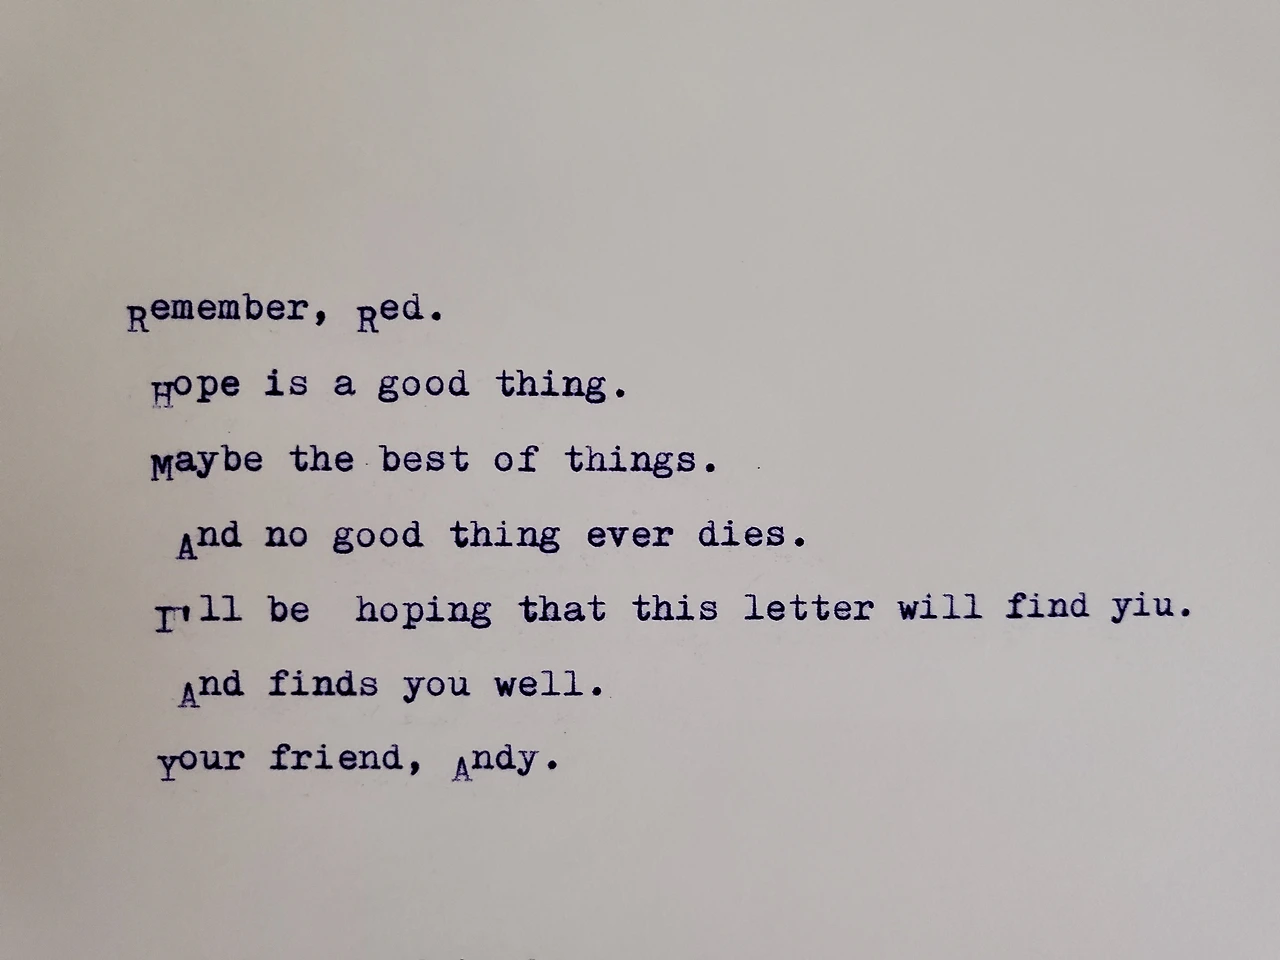 Remember, Red.
Hope is a good thing.
Maybe the best of things.
And no good thing ever dies.
I'll be  hoping that this letter will find yiu.
And finds you well.
Your friend, Andy.